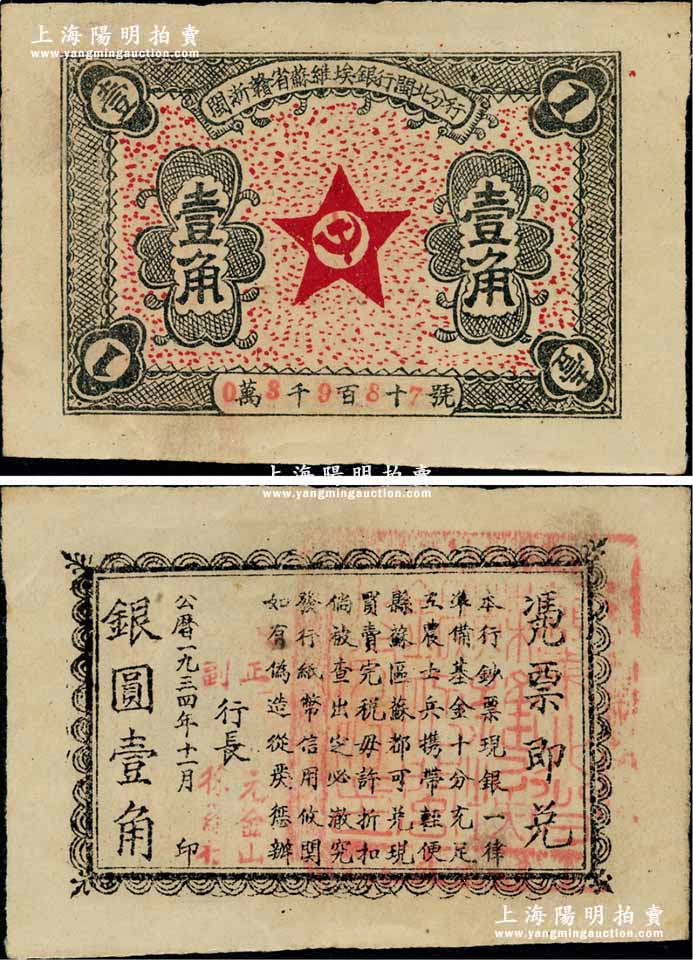 上海陽明拍賣
www.yangmingauction.com
閩浙贛省蘇維埃銀行閩北分行
壹
1
壹角
壹角
1
壹
0萬8千9百8十7號
上海陽明拍賣
www.yangmingauction.com
憑票即兑
本行鈔票現銀一律
準備基金十分充足
工農士兵携帶輕便
縣蘇區蘇都可兑現
買賣完税毋許折扣
倘敢查出定必澈究
發行紙幣信用攸関
如有偽造從嚴懲辦
正
副
行長
元金山
徐
公曆一九三四年十一月 印
銀圓壹角
上海陽明拍賣
www.yangmingauction.com